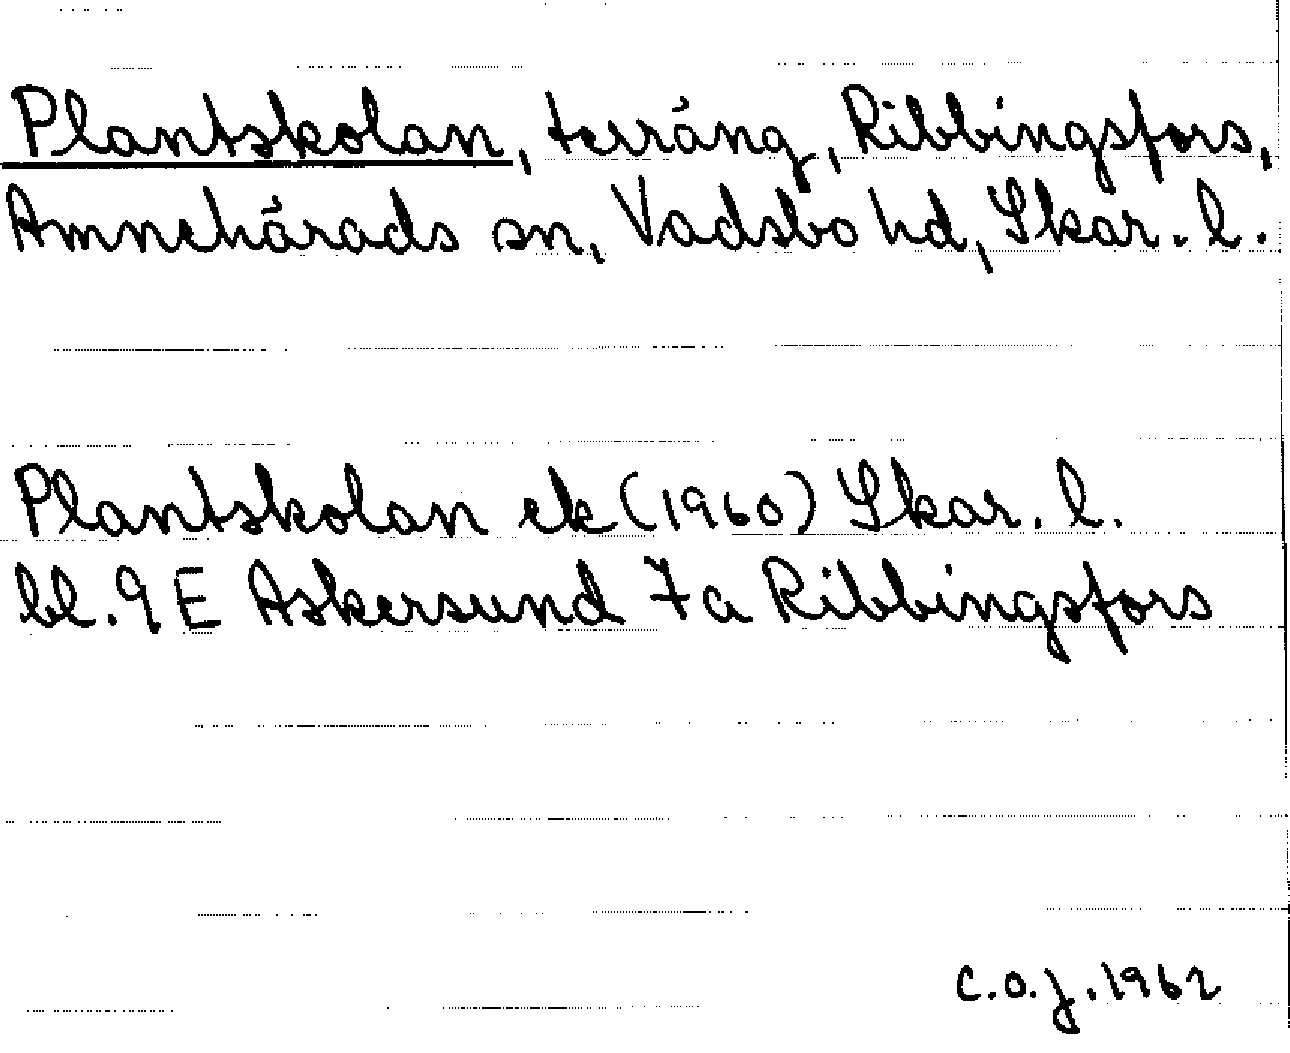 Plantskolan, terräng, Ribbingsfors,
Amnehärads sn, Vadsbo hd, Skar. l.
Plantskolan ek (1960) Skar. l.
bl. 9 E Askersund 7a Ribbingsfors
C.O.J. 1962